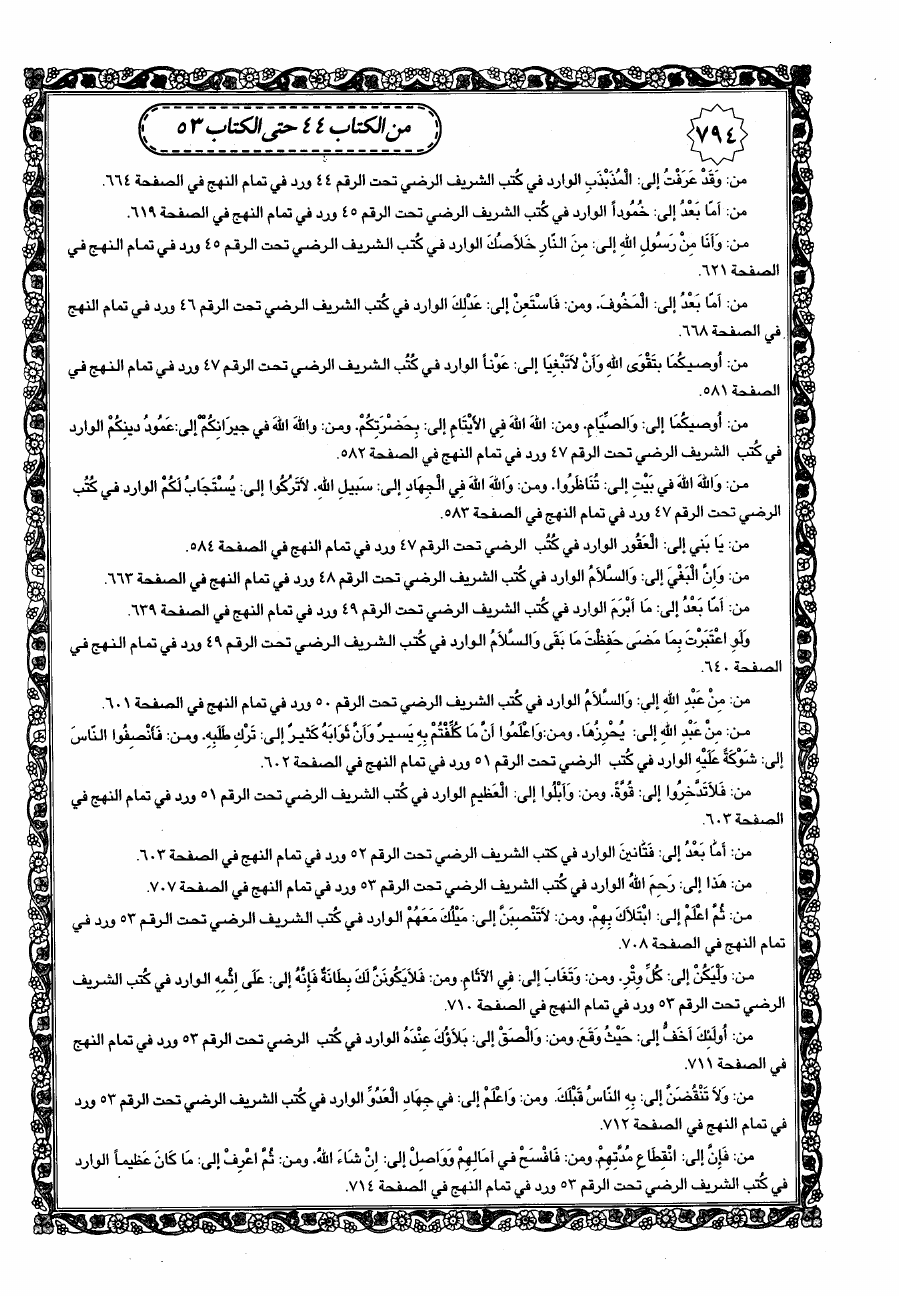 ٧٩٤
من الكتاب ٤٤ حتى الكتاب ٥٣
من: وَقَدْ عَرَفْتُ إلى: الْمُذَبْذَبِ الوارد في كُتب الشريف الرضي تحت الرقم ٤٤ ورد في تمام النهج في الصفحة ٦٦٤.
من: أَمّا بَعْدُ إلى: خُمُوداً الوارد في كُتب الشريف الرضي تحت الرقم ٤٥ ورد في تمام النهج في الصفحة ٦١٩.
من: وَأَنَا مِنْ رَسُولِ اللهِ إلى: مِنَ النّارِ خَلاَصُكَ الوارد في كُتب الشريف الرضي تحت الرقم ٤٥ ورد في تمام النهج في
الصفحة ٦٢١.
من: أَمّا بَعْدُ إلى: الْمَخُوفَ، ومن: فَاسْتَعِنْ إلى: عَدْلِكَ الوارد في كُتب الشريف الرضي تحت الرقم ٤٦ ورد في تمام النهج
في الصفحة ٦٦٨.
من: أُوصيكُمَا بِتَقْوَى اللهِ وَأَنْ لاَتَبْغِيَا إلى: عَوْناً الوارد في كُتُب الشريف الرضي تحت الرقم ٤٧ ورد في تمام النهج في
الصفحة ٥٨١.
من: أُوصيكُمَا إلى: وَالصِّيَامِ، ومن: اللهَ اللهَ فِي الأَيْتَامِ إلى: بِحَضْرَتِكُمْ، ومن: واللهَ اللهَ في جيرَانِكُمْ إلى:عَمُودُ دينِكُمْ الوارد
في كُتب الشريف الرضي تحت الرقم ٤٧ ورد في تمام النهج في الصفحة ٥٨٢.
من: وَاللهَ اللهَ في بَيْتِ إلى: تُنَاظَرُوا، ومن: وَاللهَ اللهَ فِي الْجِهَادِ إلى: سَبيلِ اللهِ، لاَتَرْكُوا إلى: يُسْتَجَابُ لَكُمْ الوارد في كُتُب
الرضي تحت الرقم ٤٧ ورد في تمام النهج في الصفحة ٥٨٣.
من: يَا بَني إلى: الْعَقُورِ الوارد في كُتُب الشريف الرضي تحت الرقم ٤٧ ورد في تمام النهج في الصفحة ٥٨٤.
من: وَإِنَّ الْبَغْيَ إلى: وَالسَّلاَمُ الوارد في كُتب الشريف الرضي تحت الرقم ٤٨ ورد في تمام النهج في الصفحة ٦٦٣.
من: أَمّا بَعْدُ إلى: مَا أَبْرَمَ الوارد في كُتب الشريف الرضي تحت الرقم ٤٩ ورد في تمام النهج في الصفحة ٦٣٩.
وَلَوِ اعْتَبَرْتَ بِمَا مَضى حَفِظْتَ مَا بَقَى وَالسَّلاَمُ الوارد في كُتب الشريف الرضي تحت الرقم ٤٩ ورد في تمام النهج في
الصفحة ٦٤٠.
من: مِنْ عَبْدِ اللهِ إلى: وَالسَّلاَمُ الوارد في كُتب الشريف الرضي تحت الرقم ٥٠ ورد في تمام النهج في الصفحة ٦٠١.
من: مِنْ عَبْدِ اللهِ إلى: يُحْرِزُهَا، ومن:وَاعْلَمُوا أَنَّ مَا كُلِّفْتُمْ بِهِ يَسيرٌ وَأَنَّ ثَوَابَهُ كَثيرٌ إلى: تَرْكِ طَلَبِهِ، ومن: فَأَنْصِفُوا النّاسَ
إلى: شَوْكَةً عَلَيْهِ الوارد في كُتب الشريف الرضي تحت الرقم ٥١ ورد في تمام النهج في الصفحة ٦٠٢.
من: فَلاَتَدَّخِرُوا إلى: قُوَّةً، ومن: وَأَبْلُوا إلى: الْعَظيمِ الوارد في كُتب الشريف الرضي تحت الرقم ٥١ ورد في تمام النهج في
الصفحة ٦٠٣.
من: أَمّا بَعْدُ إلى: فَتّانينَ الوارد في كتب الشريف الرضي تحت الرقم ٥٢ ورد في تمام النهج في الصفحة ٦٠٣.
من: هَذَا إلى: رَحِمَ اللهُ الوارد في كُتب الشريف الرضي تحت الرقم ٥٣ ورد في تمام النهج في الصفحة ٧٠٧.
من: ثُمَّ اعْلَمْ إلى: ابْتَلاَكَ بِهِمْ، ومن: لاَتَنْصِبَنَّ إلى: مَيْلُكَ مَعَهُمْ الوارد في كُتب الشريف الرضي تحت الرقم ٥٣ ورد في
تمام النهج في الصفحة ٧٠٨.
من: وَلْيَكُنْ إلى: كُلِّ وِتْرٍ، ومن: وَتَغَابَ إلى: فِي الآثَامِ، ومن: فَلاَيَكُونَنَّ لَكَ بِطَانَةً فَإِنَّهُ إلى: عَلَى إِثْمِهِ الوارد في كُتب الشريف
الرضي تحت الرقم ٥٣ ورد في تمام النهج في الصفحة ٧١٠.
من: أُولَئِكَ أَخَفُّ إلى: حَيْثُ وَقَعَ، ومن: وَالْصَقْ إلى: بَلاَؤُكَ عِنْدَهُ الوارد في كُتب الشريف الرضي تحت الرقم ٥٣ ورد في تمام النهج
في الصفحة ٧١١.
من: وَلاَ تَنْقُضَنَّ إلى: بِهِ النّاسُ قَبْلَكَ، ومن: وَاعْلَمْ إلى: في جِهَادِ الْعَدُوِّ الوارد في كُتب الشريف الرضي تحت الرقم ٥٣ ورد
في تمام النهج في الصفحة ٧١٢.
من: فَإِنَّ إلى: انْقِطَاعِ مُدَّتِهِمْ، ومن: فَافْسَحْ في آمَالِهِمْ وَوَاصِلْ إلى: إِنْ شَاءَ اللهُ، ومن: ثُمَّ اعْرِفْ إلى: مَا كَانَ عَظيماً الوارد
في كُتب الشريف الرضي تحت الرقم ٥٣ ورد في تمام النهج في الصفحة ٧١٤.